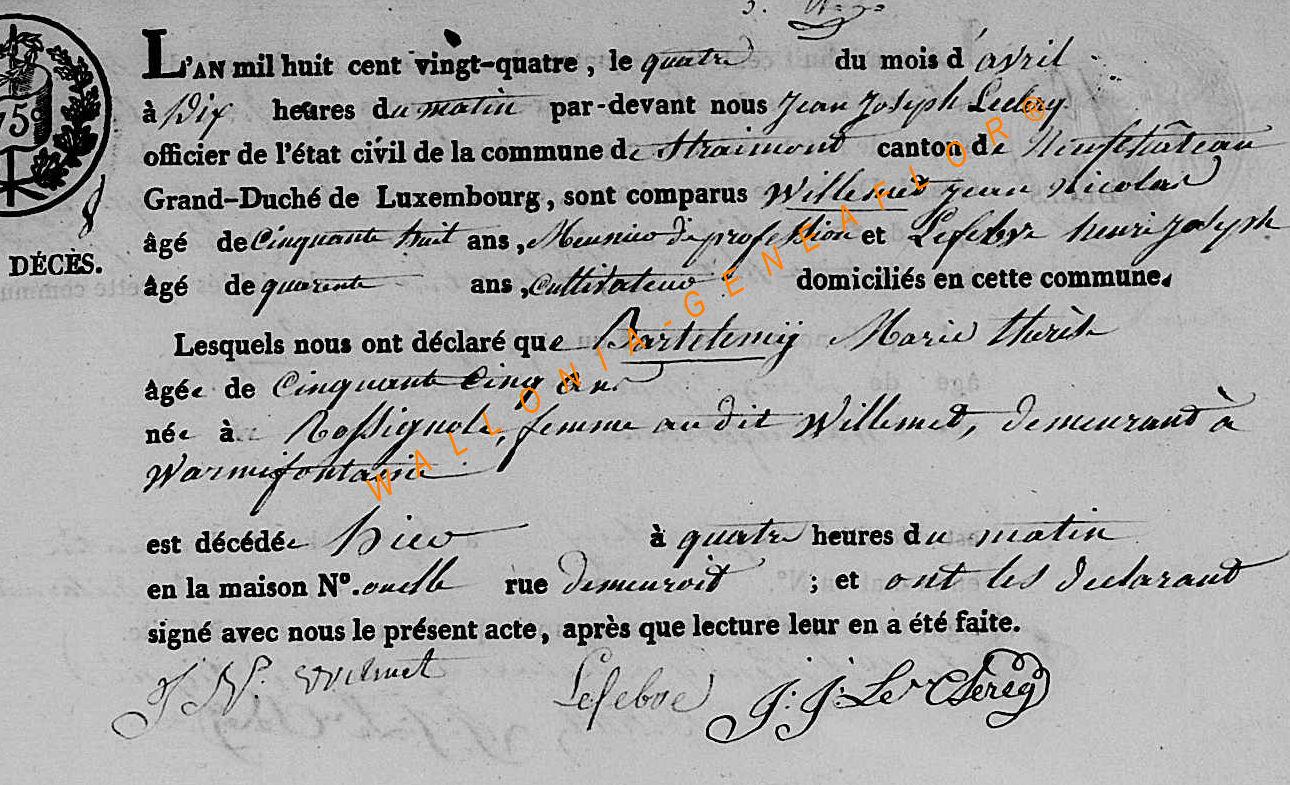 L'AN mil huit cent vingt-quatre, le quatre du mois d'avril
à Dix heures du matin par-devant nous Jean Joseph Leclerq
officier de l'état civil de la commune de Straimont canton de Neufchâteau
Grand-Duché de Luxembourg, sont comparus Willemet Jean Nicolas
âgé de Cinquante huit ans, Meunier de profession et Lefebvre henri joseph
DÉCÈS.
âgé de quarente ans, cultivateur domiciliés en cette commune.
Lesquels nous ont déclaré que Bartelemÿ Marie therèse
âgée de Cinquante Cinq ans
née à Rossignole, femme au dit Willemet, demeurant à
Warmifontaine
est décédée hier à quatre heures du matin
en la maison N°. ou elle rue demeuroit ; et ont les declarant
signé avec nous le présent acte, après que lecture leur en a été faite.
J N. Wilmet Lefebvre J: J: Le Clereq
WALLONIA-GENEAFLOR®
75